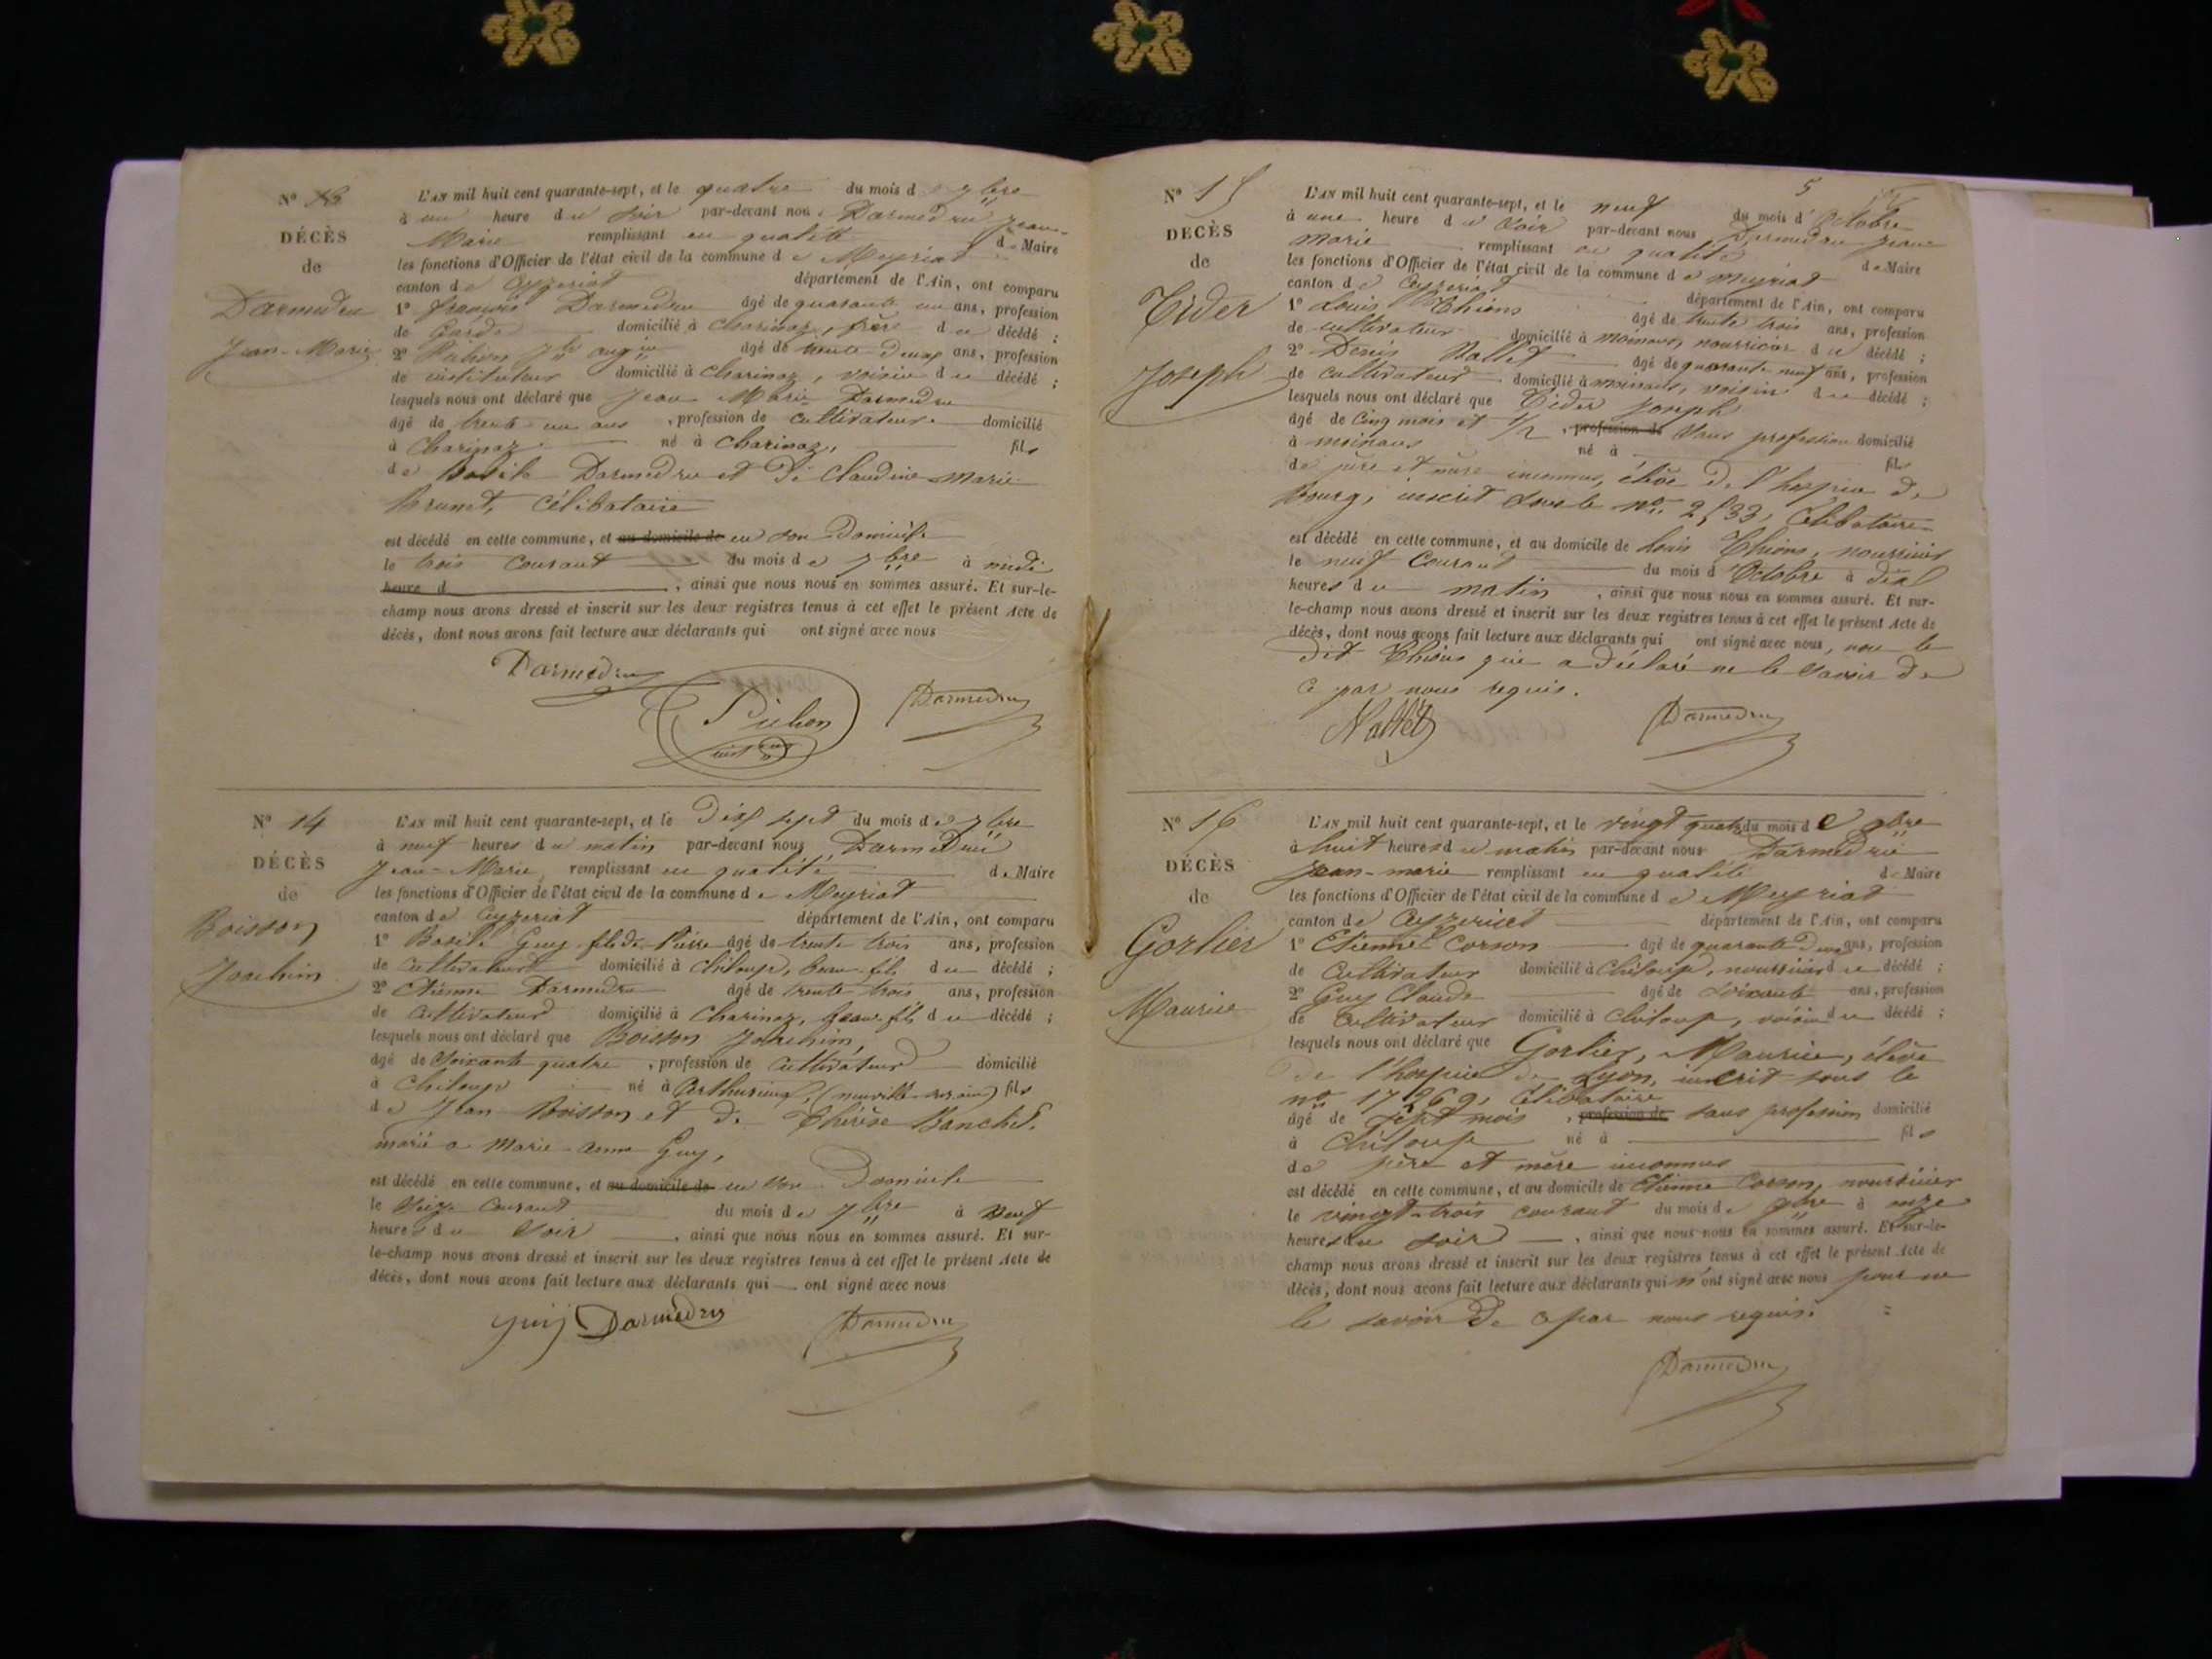 Nº 13
DÉCÈS
de
Darmedru
Jean-Marie
L'AN mil huit cent quarante-sept, et le quatre du mois de 7bre
à une heure du soir par-devant nous Darmedru Jean-
Marie remplissant en qualité de Maire
les fonctions d'Officier de l'état civil de la commune de Meyriat
canton de Ceyzeriat département de l'Ain, ont comparu
1º françois Darmedru âgé de quarante un ans, profession
de Garde domicilié à Charinaz, frère du décédé ;
2º âgé de trente deux ans, profession
de instituteur domicilié à Charinaz, voisin du décédé ;
lesquels nous ont déclaré que Jean Marie Darmedru
âgé de trente un ans , profession de cultivateur domicilié
à Charinaz né à Charinaz, fils
de Basile Darmedru et de Claudine Marie
Brunet, célibataire
est décédé en cette commune, et au domicile de en son Domicile
le trois courant du mois de 7bre à midi
heure d , ainsi que nous nous en sommes assuré. Et sur-le-
champ nous avons dressé et inscrit sur les deux registres tenus à cet effet le présent Acte de
décès, dont nous avons fait lecture aux déclarants qui ont signé avec nous
Darmedru
Darmedru
Nº 14
DÉCÈS
de
Boisson
Joachim
L'AN mil huit cent quarante-sept, et le Dix sept du mois de 7bre
à neuf heures du matin par-devant nous Darmedru
Jean-Marie, remplissant en qualité de Maire
les fonctions d'Officier de l'état civil de la commune de Meyriat
canton de Ceyzeriat département de l'Ain, ont comparu
1º Basile Guy fils de Pierre âgé de trente trois ans, profession
de cultivateur domicilié à Chiloup, beau-fils du décédé ;
2º Etienne Darmedru âgé de trente trois ans, profession
de cultivateur domicilié à Charinaz, beau-fils du décédé ;
lesquels nous ont déclaré que Boisson Joachim,
âgé de soixante quatre , profession de cultivateur domicilié
à Chiloup né à (neuville-sur-ain) fils
de Jean Boisson et de Thérèse
marié a Marie-anne Guy,
est décédé en cette commune, et au domicile de en son Domicile
le seize courant du mois de 7bre à neuf
heures du soir , ainsi que nous nous en sommes assuré. Et sur-
le-champ nous avons dressé et inscrit sur les deux registres tenus à cet effet le présent Acte de
décès, dont nous avons fait lecture aux déclarants qui ont signé avec nous
guy Darmedru
Darmedru
5
Nº 15
DÉCÈS
de
Tider
Joseph
L'AN mil huit cent quarante-sept, et le neuf du mois d'Octobre
à une heure du soir par-devant nous Darmedru Jean
marie remplissant en qualité de Maire
les fonctions d'Officier de l'état civil de la commune de Meyriat
canton de Ceyzeriat département de l'Ain, ont comparu
1º Louis Thions âgé de trente trois ans, profession
de cultivateur domicilié à moinans, nourricier du décédé ;
2º Denis Nallet âgé de quarante-neuf ans, profession
de cultivateur domicilié à moinans, voisin du décédé ;
lesquels nous ont déclaré que Tider Joseph
âgé de cinq mois et 1/2 , profession de sans profession domicilié
à moinans né à fils
de père et mère inconnus, élève de l'hospice de
Bourg, inscrit sous le no 2533, célibataire
est décédé en cette commune, et au domicile de Louis Thions, nourricier
le neuf courant du mois d'Octobre à dix
heures du matin , ainsi que nous nous en sommes assuré. Et sur-
le-champ nous avons dressé et inscrit sur les deux registres tenus à cet effet le présent Acte de
décès, dont nous avons fait lecture aux déclarants qui ont signé avec nous, non le
dit Thions qui a déclaré ne le savoir de
ce par nous requis.
Nallet
Darmedru
Nº 16
DÉCÈS
de
Gorlier
Maurice
L'AN mil huit cent quarante-sept, et le vingt quatre du mois de 9bre
à huit heures du matin par-devant nous Darmedru
Jean-marie remplissant en qualité de Maire
les fonctions d'Officier de l'état civil de la commune de Meyriat
canton de Ceyzeriat département de l'Ain, ont comparu
1º Etienne Corson âgé de quarante Deux ans, profession
de cultivateur domicilié à Chiloup, nourricier du décédé ;
2º Guy Claude âgé de soixante ans, profession
de cultivateur domicilié à Chiloup, voisin du décédé ;
lesquels nous ont déclaré que Gorlier, Maurice, élève
de l'hospice de Lyon, inscrit sous le
no 17869, célibataire
âgé de sept mois , profession de sans profession domicilié
à Chiloup né à fils
de père et mère inconnus
est décédé en cette commune, et au domicile de Etienne Corson, nourricier
le vingt-trois courant du mois de 9bre à onze
heures du soir , ainsi que nous nous en sommes assuré. Et sur-le-
champ nous avons dressé et inscrit sur les deux registres tenus à cet effet le présent Acte de
décès, dont nous avons fait lecture aux déclarants qui n'ont signé avec nous pour ne
le savoir de ce par nous requis.
Darmedru